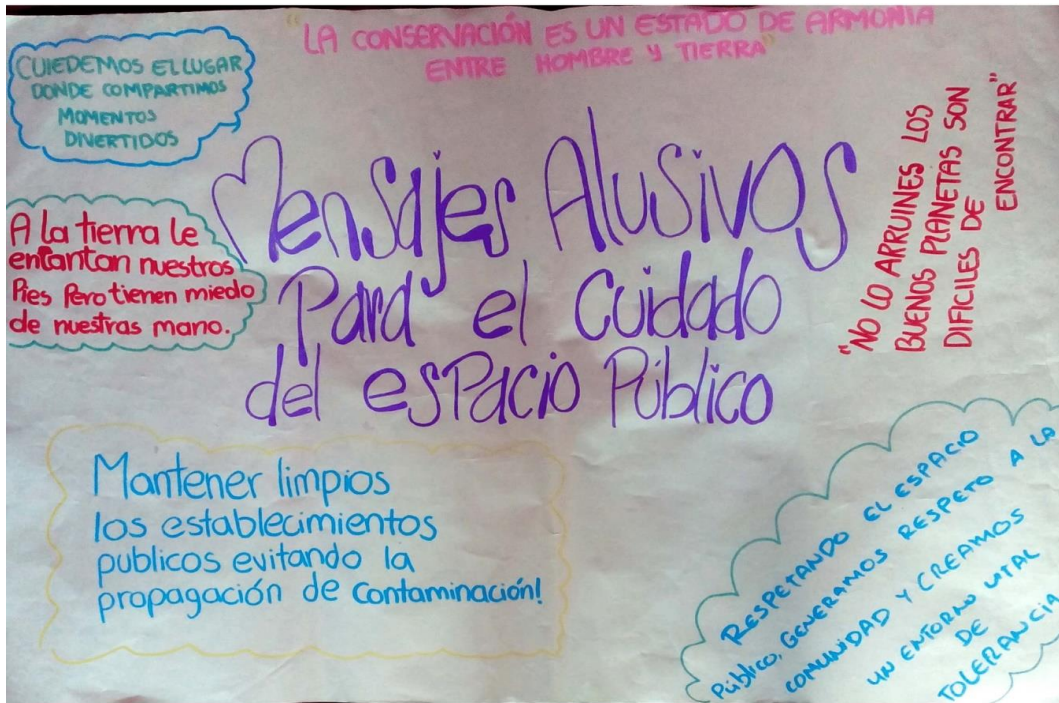 "LA CONSERVACIÓN ES UN ESTADO DE ARMONIA
ENTRE HOMBRE Y TIERRA"
CUIEDEMOS EL LUGAR
DONDE COMPARTIMOS
MOMENTOS
DIVERTIDOS
Mensajes Alusivos
Para el Cuidado
del esPacio Público
A la tierra le
entantan nuestros
Pies Pero tienen miedo
de nuestras mano.
"NO LO ARRUINES LOS
BUENOS PLANETAS SON
DIFICILES DE
ENCONTRAR"
Mantener limpios
los establecimientos
publicos evitando la
propagación de contaminación!
RESPETANDO EL ESPACIO
Público, GENERAMOS RESPETO A LA
COMUNIDAD Y CREAMOS
UN ENTORNO VITAL
DE
TOLERANCIA